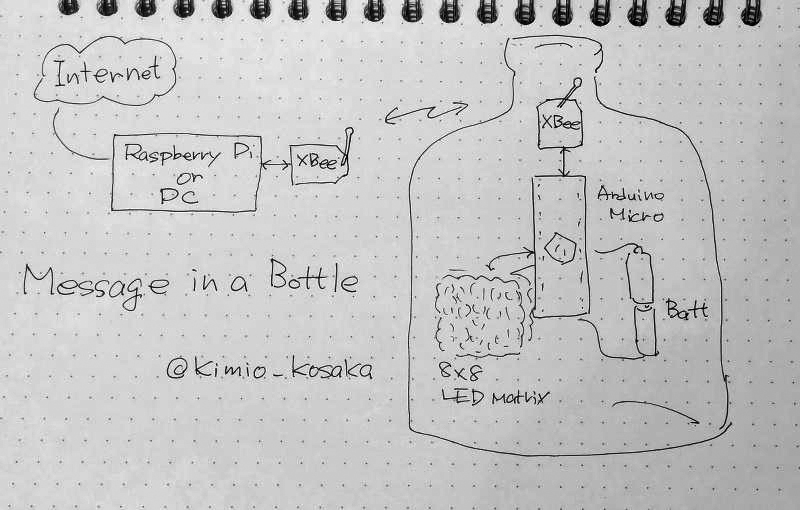 Internet
Raspberry Pi
or
PC
XBee
XBee
Arduino
Micro
Message in a Bottle
Batt
@kimio_kosaka
8x8
LED Matrix